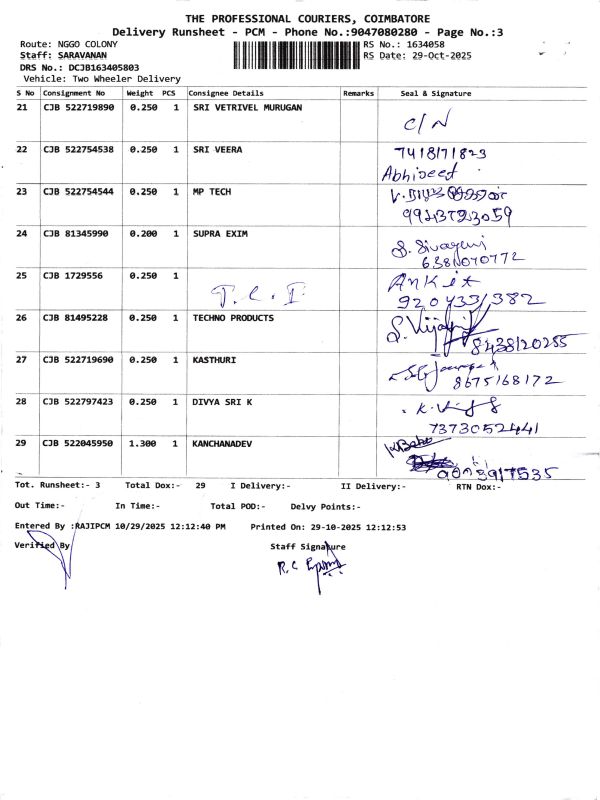 THE PROFESSIONAL COURIERS, COIMBATORE
Delivery Runsheet - PCM - Phone No.:9047080280 - Page No.:3
Route: NGGO COLONY RS No.: 1634058
Staff: SARAVANAN RS Date: 29-Oct-2025
DRS No.: DCJB163405803
Vehicle: Two Wheeler Delivery
S No Consignment No Weight PCS Consignee Details Remarks Seal & Signature
21 CJB 522719890 0.250 1 SRI VETRIVEL MURUGAN
C/N
22 CJB 522754538 0.250 1 SRI VEERA 7418171823
23 CJB 522754544 0.250 1 MP TECH
24 CJB 81345990 0.200 1 SUPRA EXIM
S. Sivagami
25 CJB 1729556 0.250 1 Ankit
T.C.I 9204331382
26 CJB 81495228 0.250 1 TECHNO PRODUCTS
8438120255
27 CJB 522719690 0.250 1 KASTHURI
8675168172
28 CJB 522797423 0.250 1 DIVYA SRI K
7373052441
29 CJB 522045950 1.300 1 KANCHANADEV
Tot. Runsheet:- 3 Total Dox:- 29 I Delivery:- II Delivery:- RTN Dox:-
Out Time:- In Time:- Total POD:- Delvy Points:-
Entered By :RAJIPCM 10/29/2025 12:12:40 PM Printed On: 29-10-2025 12:12:53
Verified By Staff Signature
R.C